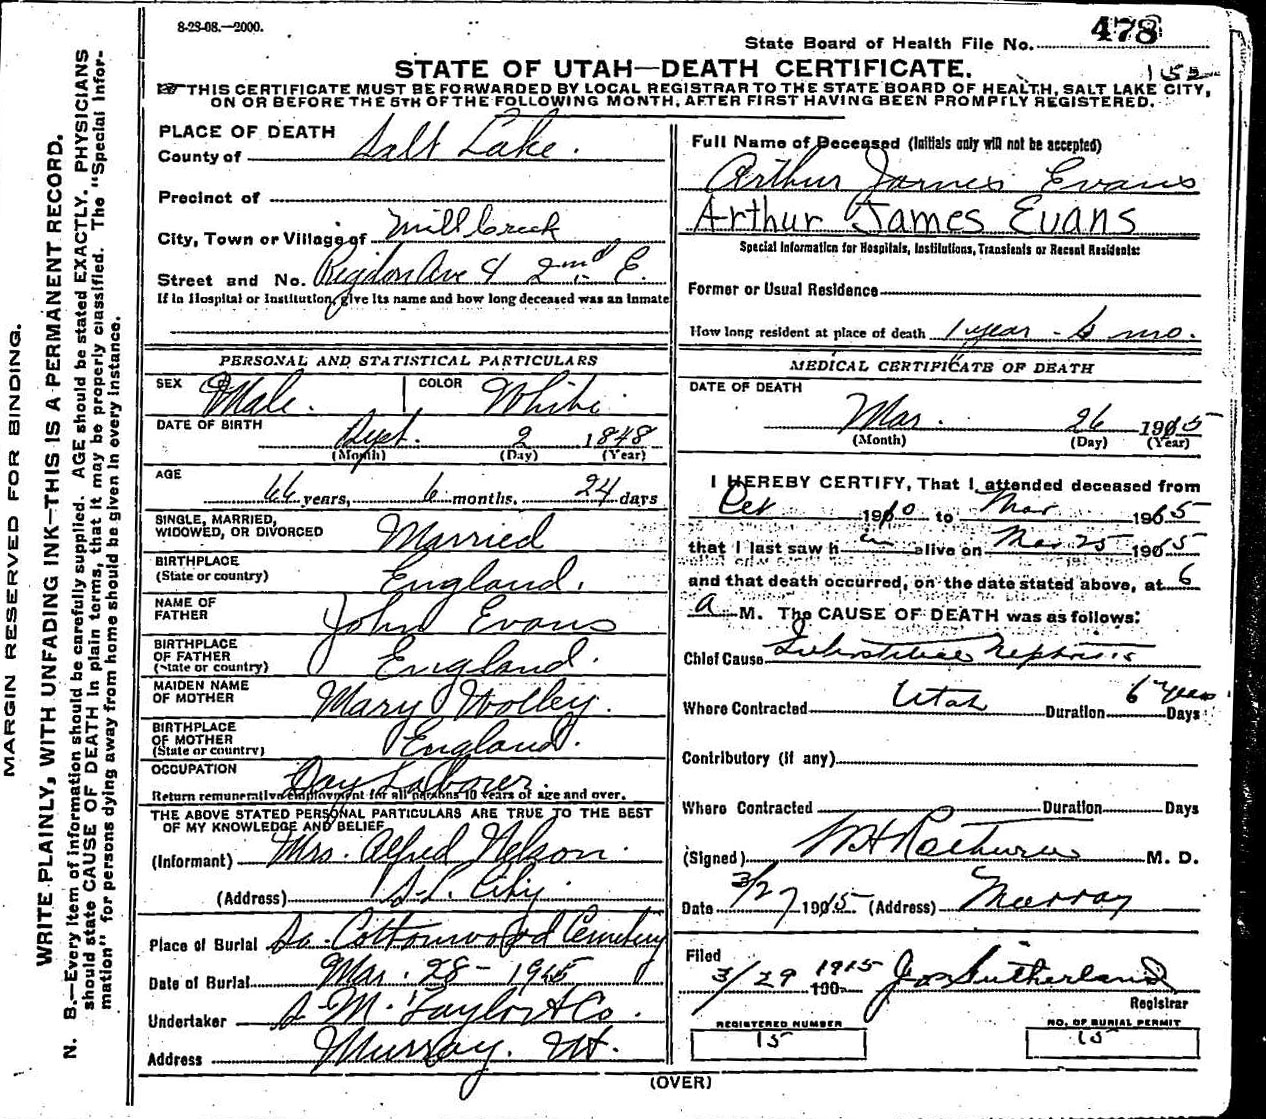 8-23-08.—2000.
State Board of Health File No. 478
STATE OF UTAH—DEATH CERTIFICATE.
152
THIS CERTIFICATE MUST BE FORWARDED BY LOCAL REGISTRAR TO THE STATE BOARD OF HEALTH, SALT LAKE CITY,
ON OR BEFORE THE 5TH OF THE FOLLOWING MONTH, AFTER FIRST HAVING BEEN PROMPTLY REGISTERED.
PLACE OF DEATH
County of Salt Lake.
Precinct of
City, Town or Village of Mill Creek
Street and No. Rigdon Ave & 2nd E.
If in Hospital or Institution, give its name and how long deceased was an inmate
PERSONAL AND STATISTICAL PARTICULARS
SEX Male. COLOR White
DATE OF BIRTH
Sept. 2 1848
(Month) (Day) (Year)
AGE
66 years, 6 months, 24 days
SINGLE, MARRIED,
WIDOWED, OR DIVORCED Married
BIRTHPLACE
(State or country) England.
NAME OF
FATHER John Evans
BIRTHPLACE
OF FATHER
(State or country) England.
MAIDEN NAME
OF MOTHER Mary Wolley.
BIRTHPLACE
OF MOTHER
(State or country) England.
OCCUPATION Day Laborer.
Return remunerative employment for all persons 10 years of age and over.
THE ABOVE STATED PERSONAL PARTICULARS ARE TRUE TO THE BEST
OF MY KNOWLEDGE AND BELIEF
(Informant) Mrs. Alfred Nelson.
(Address) S.L. City.
Place of Burial So. Cottonwood Cemetery
Date of Burial Mar. 28 - 1915
Undertaker S. M. Taylor & Co.
Address Murray. Ut.
Full Name of Deceased (Initials only will not be accepted)
Arthur James Evans
Arthur James Evans
Special Information for Hospitals, Institutions, Transients or Recent Residents:
Former or Usual Residence
How long resident at place of death 1 year - 6 mo.
MEDICAL CERTIFICATE OF DEATH
DATE OF DEATH
Mar. 26 1915
(Month) (Day) (Year)
I HEREBY CERTIFY, That I attended deceased from
1910 to Mar 1915
that I last saw him alive on Mar 25 1915
and that death occurred, on the date stated above, at 6
A M. The CAUSE OF DEATH was as follows:
Chief Cause Interstitial Nephritis
Where Contracted Utah Duration 6 years Days
Contributory (if any)
Where Contracted Duration Days
(Signed) M. D.
Date 3/27 1915 (Address) Murray
Filed
3/29 1915 190 Jas Sutherland
Registrar
REGISTERED NUMBER
15
NO. OF BURIAL PERMIT
15
(OVER)
MARGIN RESERVED FOR BINDING.
WRITE PLAINLY, WITH UNFADING INK—THIS IS A PERMANENT RECORD.
N. B.—Every item of information should be carefully supplied. AGE should be stated EXACTLY. PHYSICIANS
should state CAUSE OF DEATH in plain terms, that it may be properly classified. The "Special Infor-
mation" for persons dying away from home should be given in every instance.